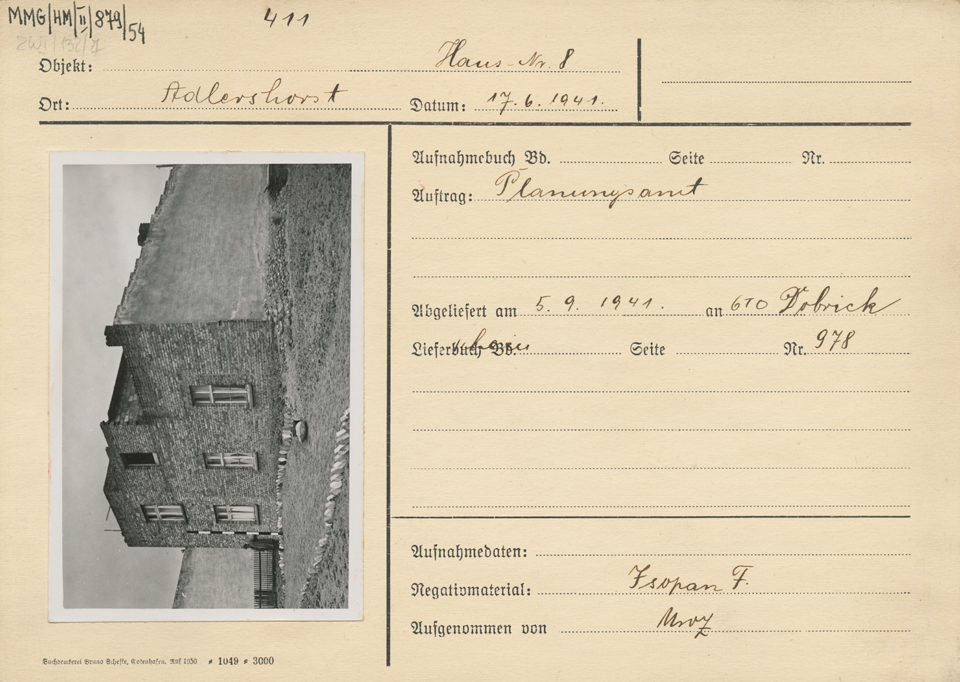 MMG/HM/II/879/54
411
Objekt: Haus-Nr. 8
Ort: Adlershorst Datum: 17.6.1941.
Aufnahmebuch Bd. Seite Nr.
Auftrag: Planungsamt
Abgeliefert am 5.9.1941. an Dobrick
Lieferbuch Bd. Seite Nr. 978
Aufnahmedaten:
Negativmaterial: Isopan F.
Aufgenommen von Mroz
Buchdruckerei Bruno Scheffke, Gotenhafen. Ruf 1950 * 1049 * 3000